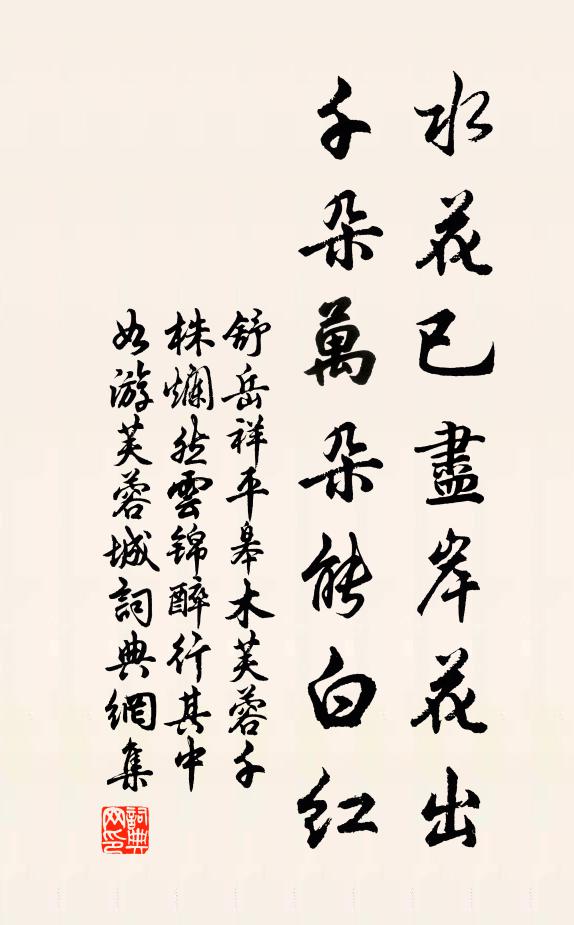 水花已盡岸花出
千朵萬朵能白紅
舒岳祥平皋木芙蓉千
株爛然雲錦醉行其中
如游芙蓉城詞典網集
詞典
网印